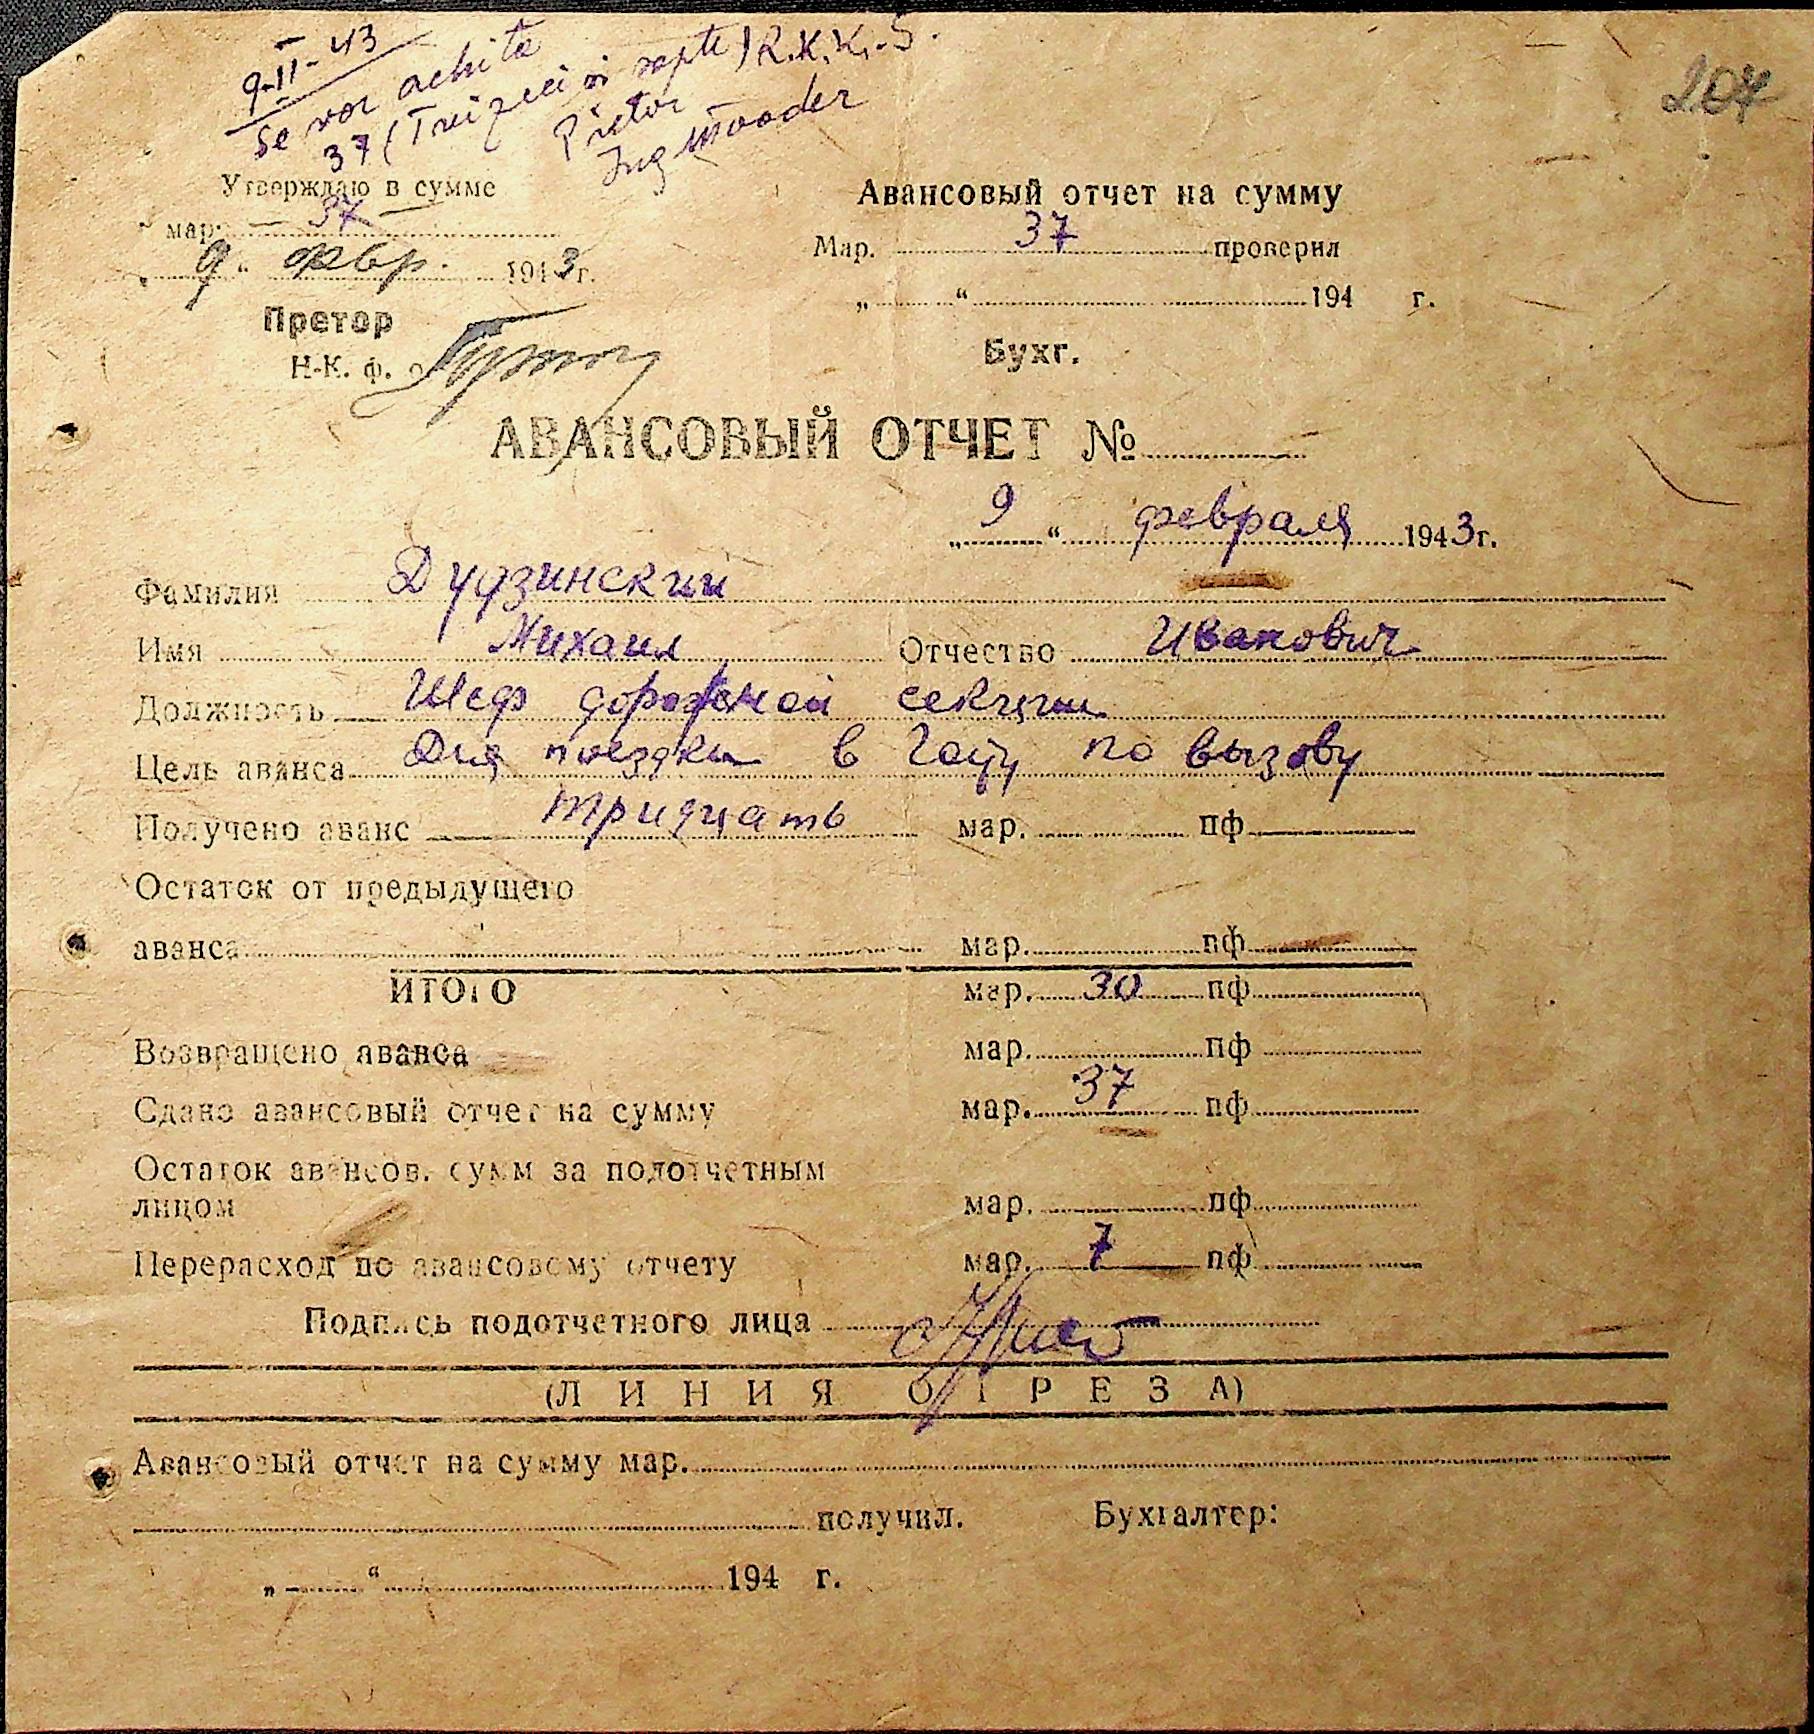 9-II-43
Se vor achita
37 (Treizeci si sapte) R.K.K.-S.
Pretor
Ing
207
Утверждаю в сумме
мар. 37
„9“ февр. 1943 г.
Претор
Н-К. ф. о
Авансовый отчет на сумму
Мар. 37 проверил
„ “ 194 г.
Бухг.
АВАНСОВЫЙ ОТЧЕТ №
„9“ февраля 1943 г.
Фамилия Дудзинский
Имя Михаил Отчество Иванович
Должность Шеф дорожной секции
Цель аванса Для поездки в Голту по вызову
Получено аванс тридцать мар. пф
Остаток от предыдущего
аванса мар. пф
ИТОГО мар. 30 пф
Возвращено аванса мар. пф
Сдано авансовый отчет на сумму мар. 37 пф
Остаток авансов. сумм за подотчетным
лицом мар. пф
Перерасход по авансовому отчету мар. 7 пф
Подпись подотчетного лица
(ЛИНИЯ ОТРЕЗА)
Авансовый отчет на сумму мар.
получил. Бухгалтер:
„ “ 194 г.